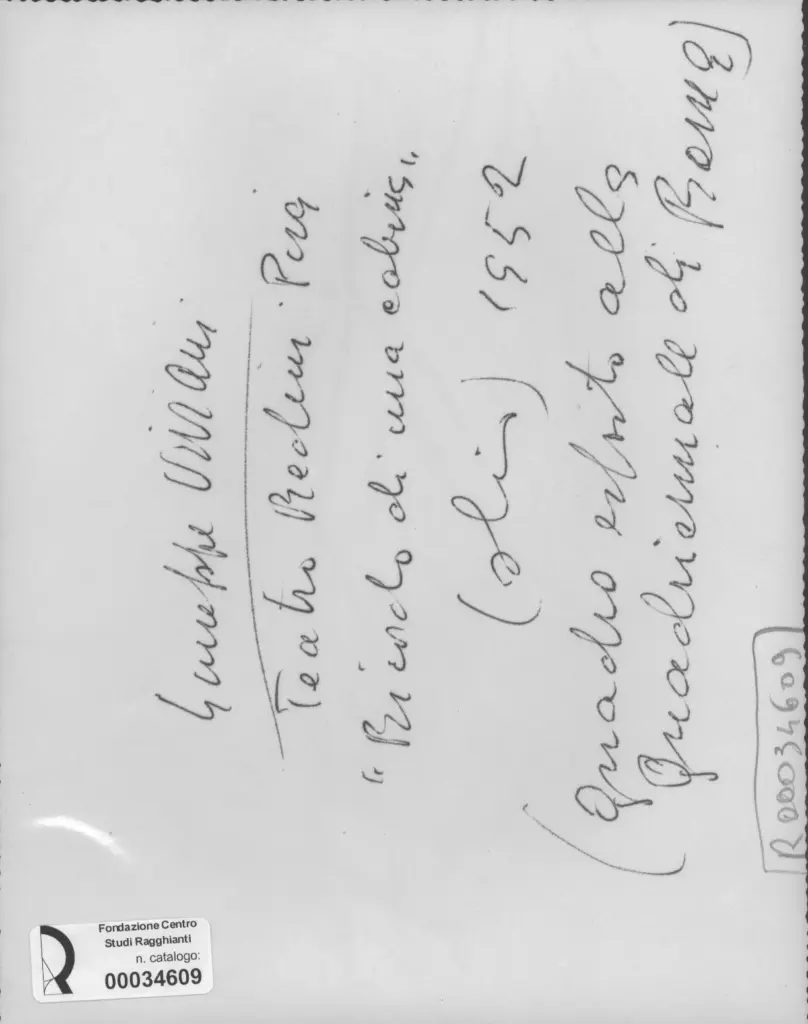 Giuseppe Viviani
Teatro Redini Pisa
"Ricordo di una cabina"
(olio) 1952
(quadro esposto alla
Quadriennale di Roma)
R00034609
Fondazione Centro
Studi Ragghianti
n. catalogo:
00034609